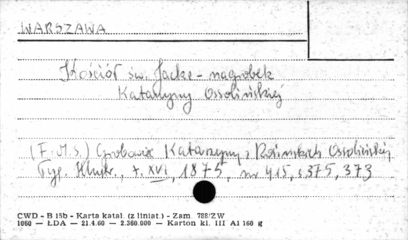 WARSZAWA
Kościół św. Jacka - nagrobek
Katarzyny Ossolińskiej
(F.M.S.) Grobowiec Katarzyny z Ossolińskiej
Tyg. Illustr., t. XVI, 1875, nr 415, s. 375, 373
CWD - B 15b - Karta katal. (z liniat.) - Zam. 788/ZW
1060 - ŁDA - 21.4.60 - 2.360.000 - Karton kl. III A1 160 g